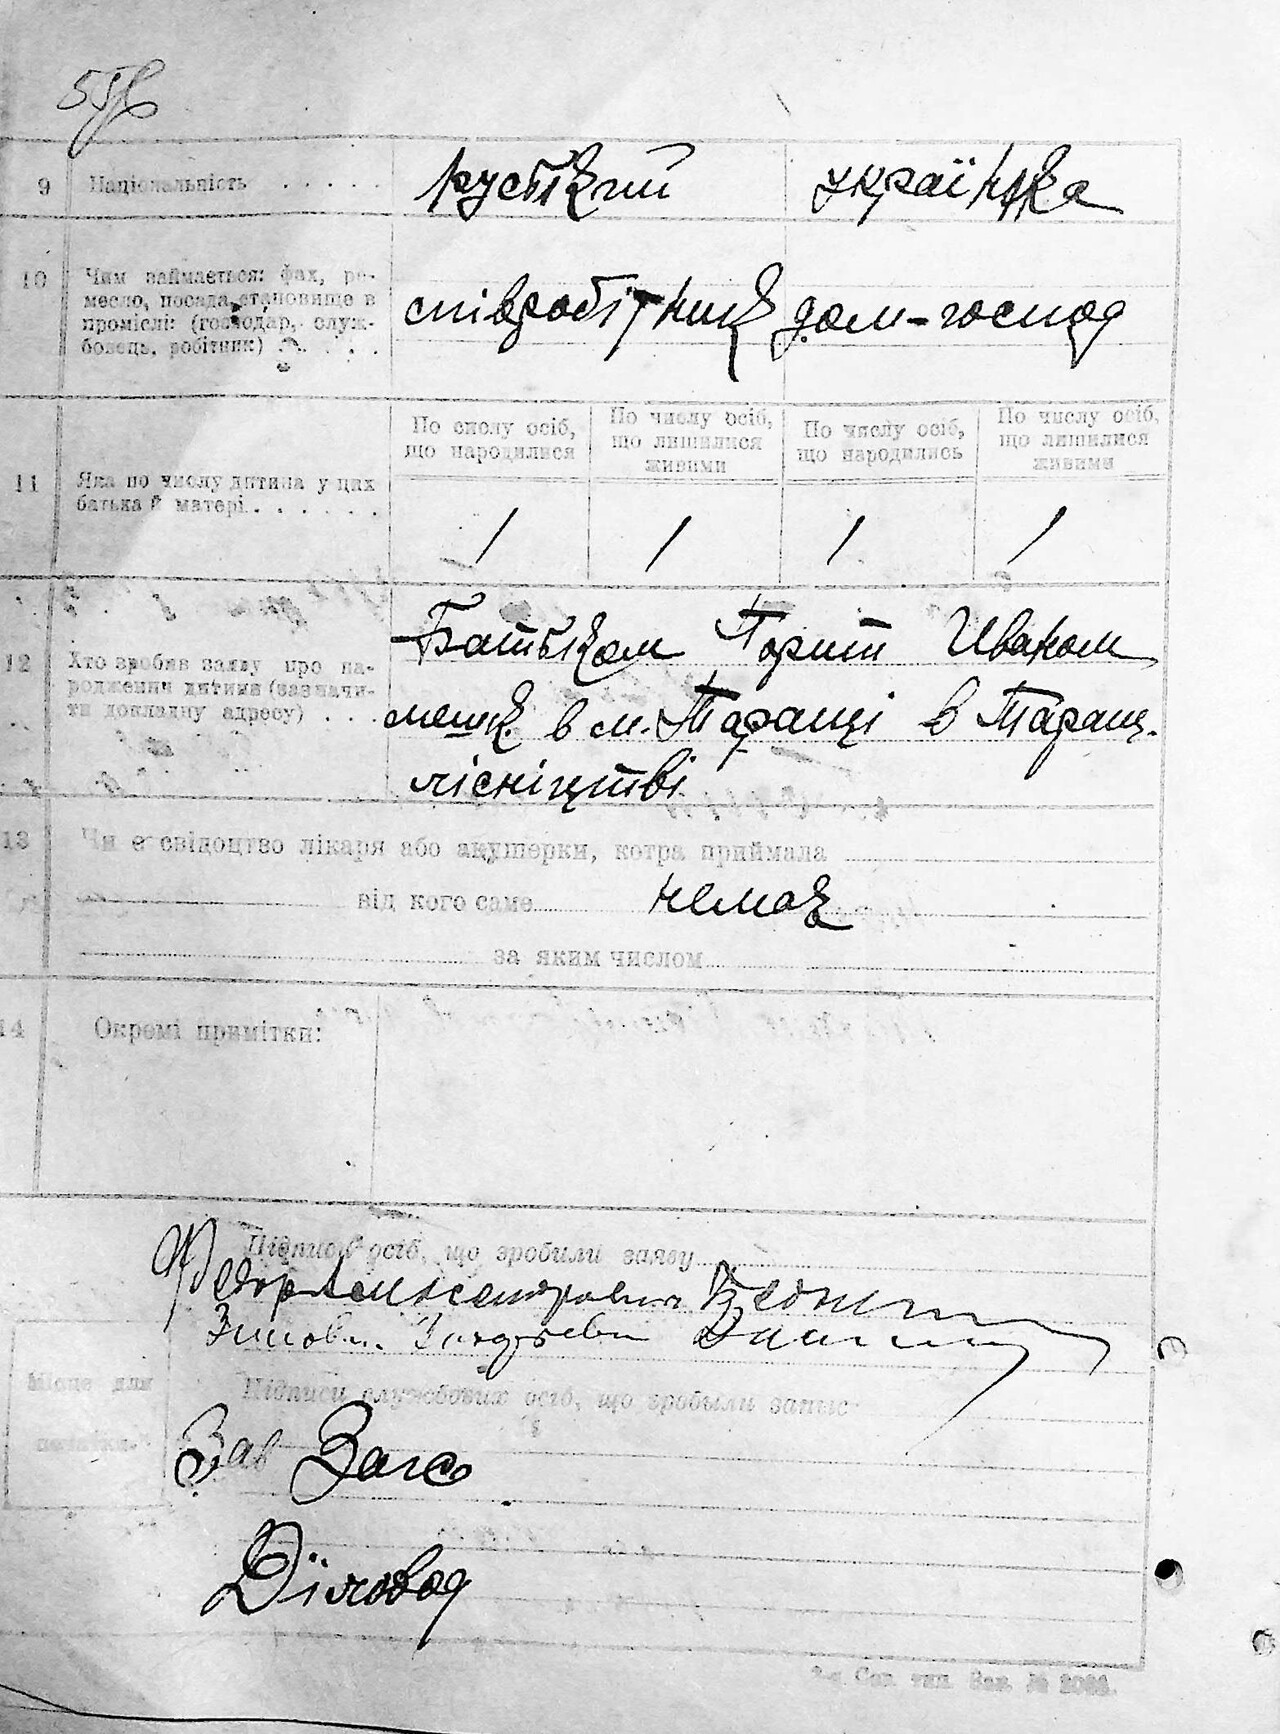 9 Національність . . . . . руський українка
10 Чим займається: фах, ре-
месло, посада, становище в
промислі: (господар, служ-
бовець, робітник) . . . співробітник дом-господ
По числу осіб, що народилися
По числу осіб, що лишилися живими
По числу осіб, що народились
По числу осіб, що лишилися живими
11 Яка по числу дитина у цих
батька й матері . . . . . . 1 1 1 1
12 Хто зробив заяву про на-
родження дитини (зазначи-
ти докладну адресу) . . .
Батьком Иваном
мешк. в м. Таращі в Таращ.
лісніцтві
13 Чи є свідоцтво лікаря або акушерки, котра приймала
від кого саме немає
за яким числом
14 Окремі примітки:
Підписи осіб, що зробили заяву
Підписи службових осіб, що зробыли запис
Місце для
печатки
Зав Загс
Діловод